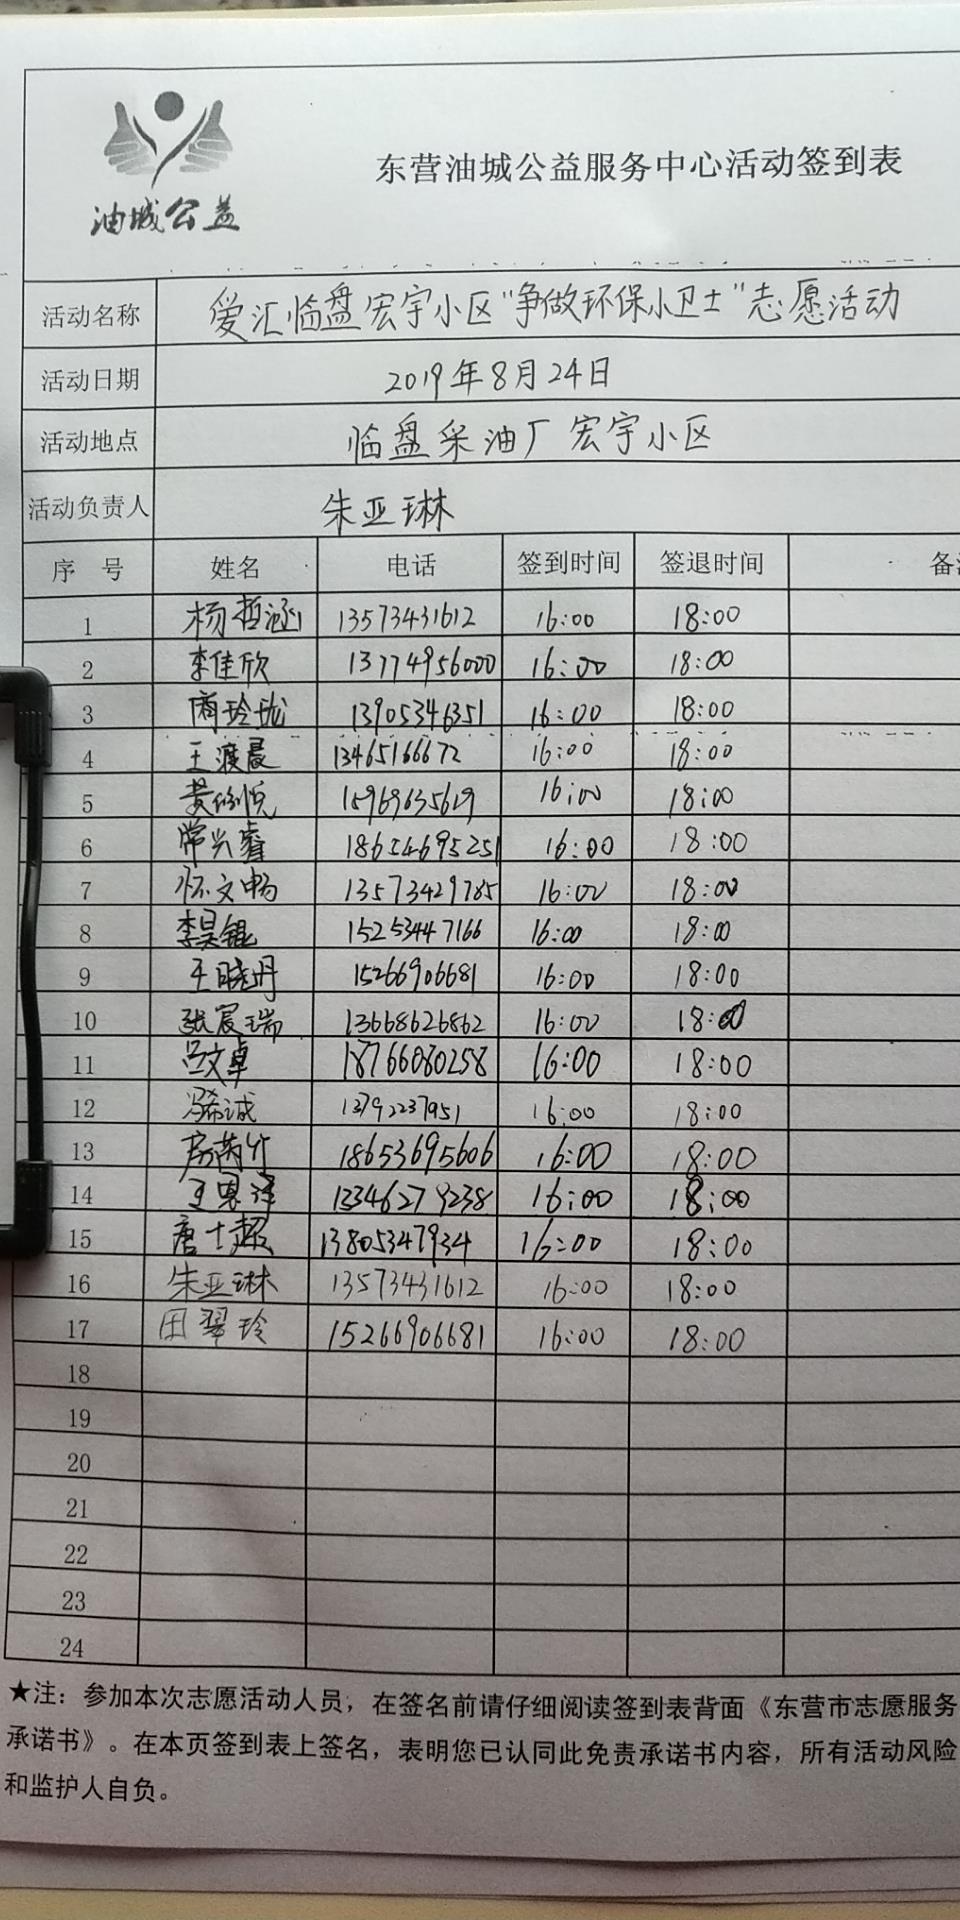 油城公益
东营油城公益服务中心活动签到表
活动名称 爱汇临盘宏宇小区"争做环保小卫士"志愿活动
活动日期 2019年8月24日
活动地点 临盘采油厂宏宇小区
活动负责人 朱亚琳
序 号 姓名 电话 签到时间 签退时间 备
1 杨哲涵 13573431612 16:00 18:00
2 李佳欣 13774956000 16:00 18:00
3 商玲珑 13905346351 16:00 18:00
4 王渡晨 13465166672 16:00 18:00
5 黄悦 15969635619 16:00 18:00
6 常兴睿 18654695251 16:00 18:00
7 怀文畅 13573429785 16:00 18:00
8 李昊锟 15253447166 16:00 18:00
9 王晓丹 15266906681 16:00 18:00
10 张宸瑞 13668626862 16:00 18:00
11 吕文卓 18766080258 16:00 18:00
12 冯希诚 13792237951 16:00 18:00
13 房芮竹 18653695606 16:00 18:00
14 王恩泽 13346279238 16:00 18:00
15 唐士超 13805347934 16:00 18:00
16 朱亚琳 13573431612 16:00 18:00
17 田翠玲 15266906681 16:00 18:00
18
19
20
21
22
23
24
★注：参加本次志愿活动人员，在签名前请仔细阅读签到表背面《东营市志愿服务
承诺书》。在本页签到表上签名，表明您已认同此免责承诺书内容，所有活动风险
和监护人自负。